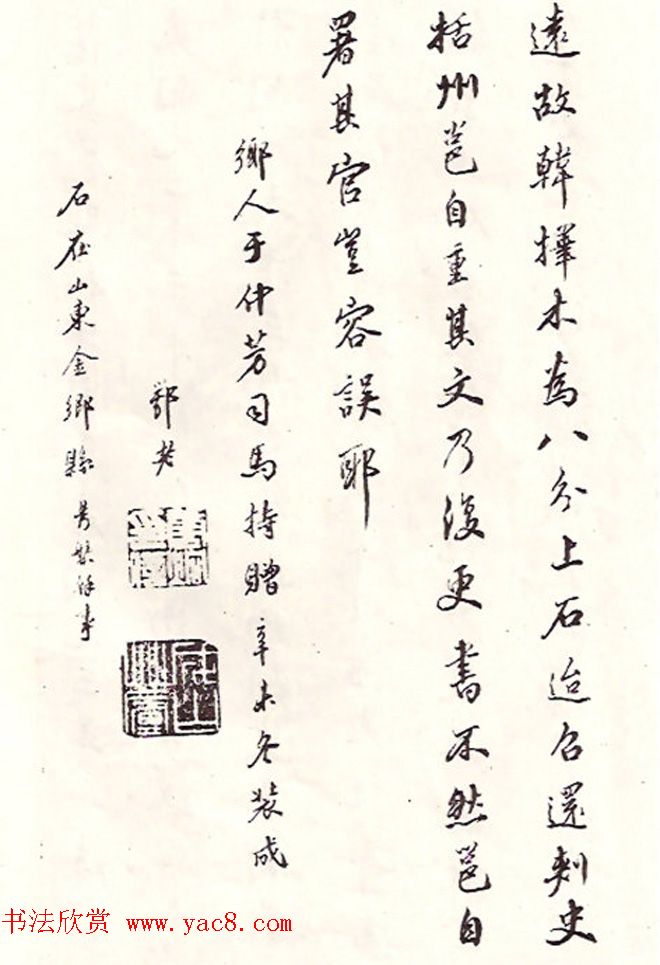 遠故韓擇木為八分上石迨召還刺史
括州邕自重其文乃復更書不然邕自
署其官豈容誤耶
鄉人于仲芳司馬持贈辛未冬裝成
鄂老
石在山東金鄉縣
书法欣赏 www.yac8.com